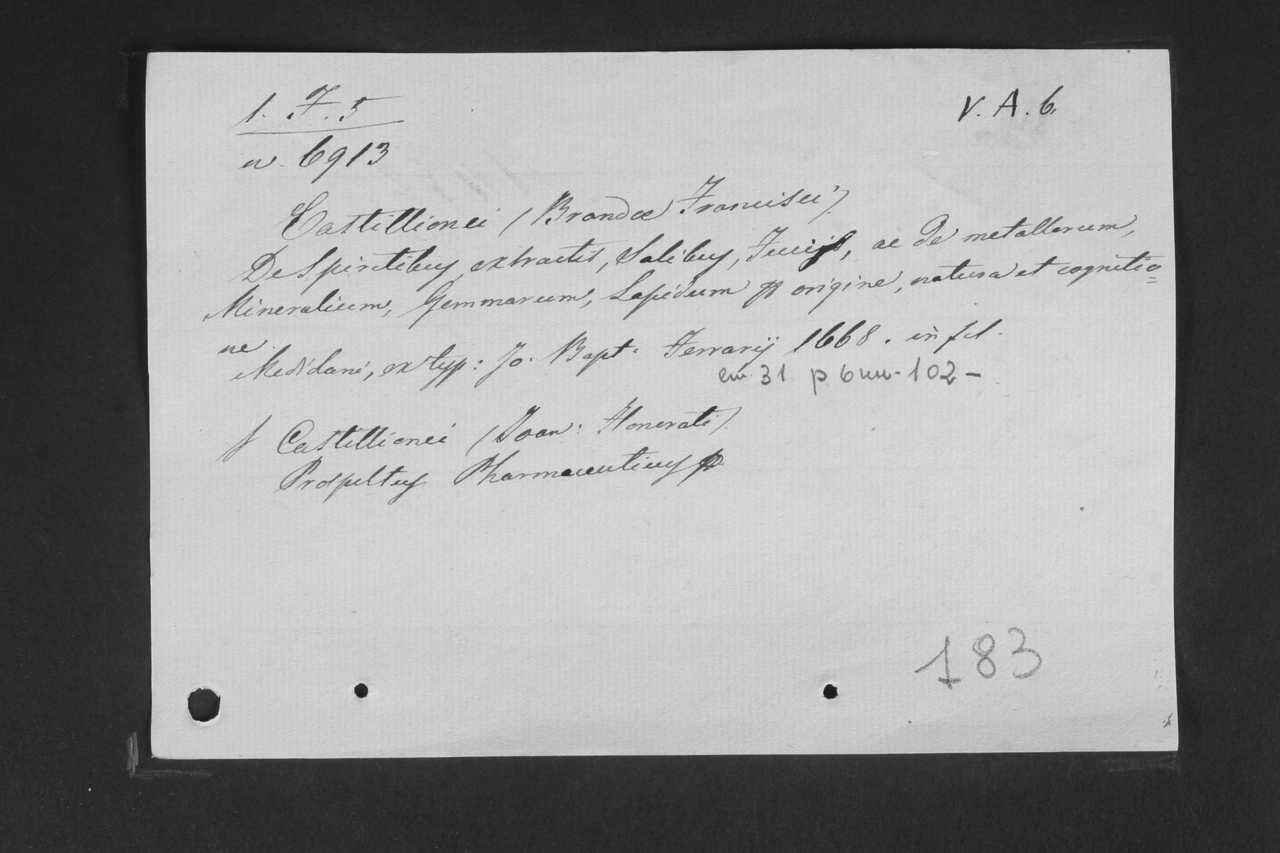 1. F. 5
V. A. 6.
n. 6913
Castillionei (Brandæ Francisci).
De Spiritibus, extractis, Salibus, Fucis, ac de metallorum,
Mineralium, Gemmarum, Lapidum origine, natura et cognitio=
ne.
Mediolani, ex typ: Jo. Bapt: Ferrarij 1668. in fol.
cm 31 p 6 nn-102-
Castillionei (Joan: Honorati).
Prospectus Pharmaceuticus
183